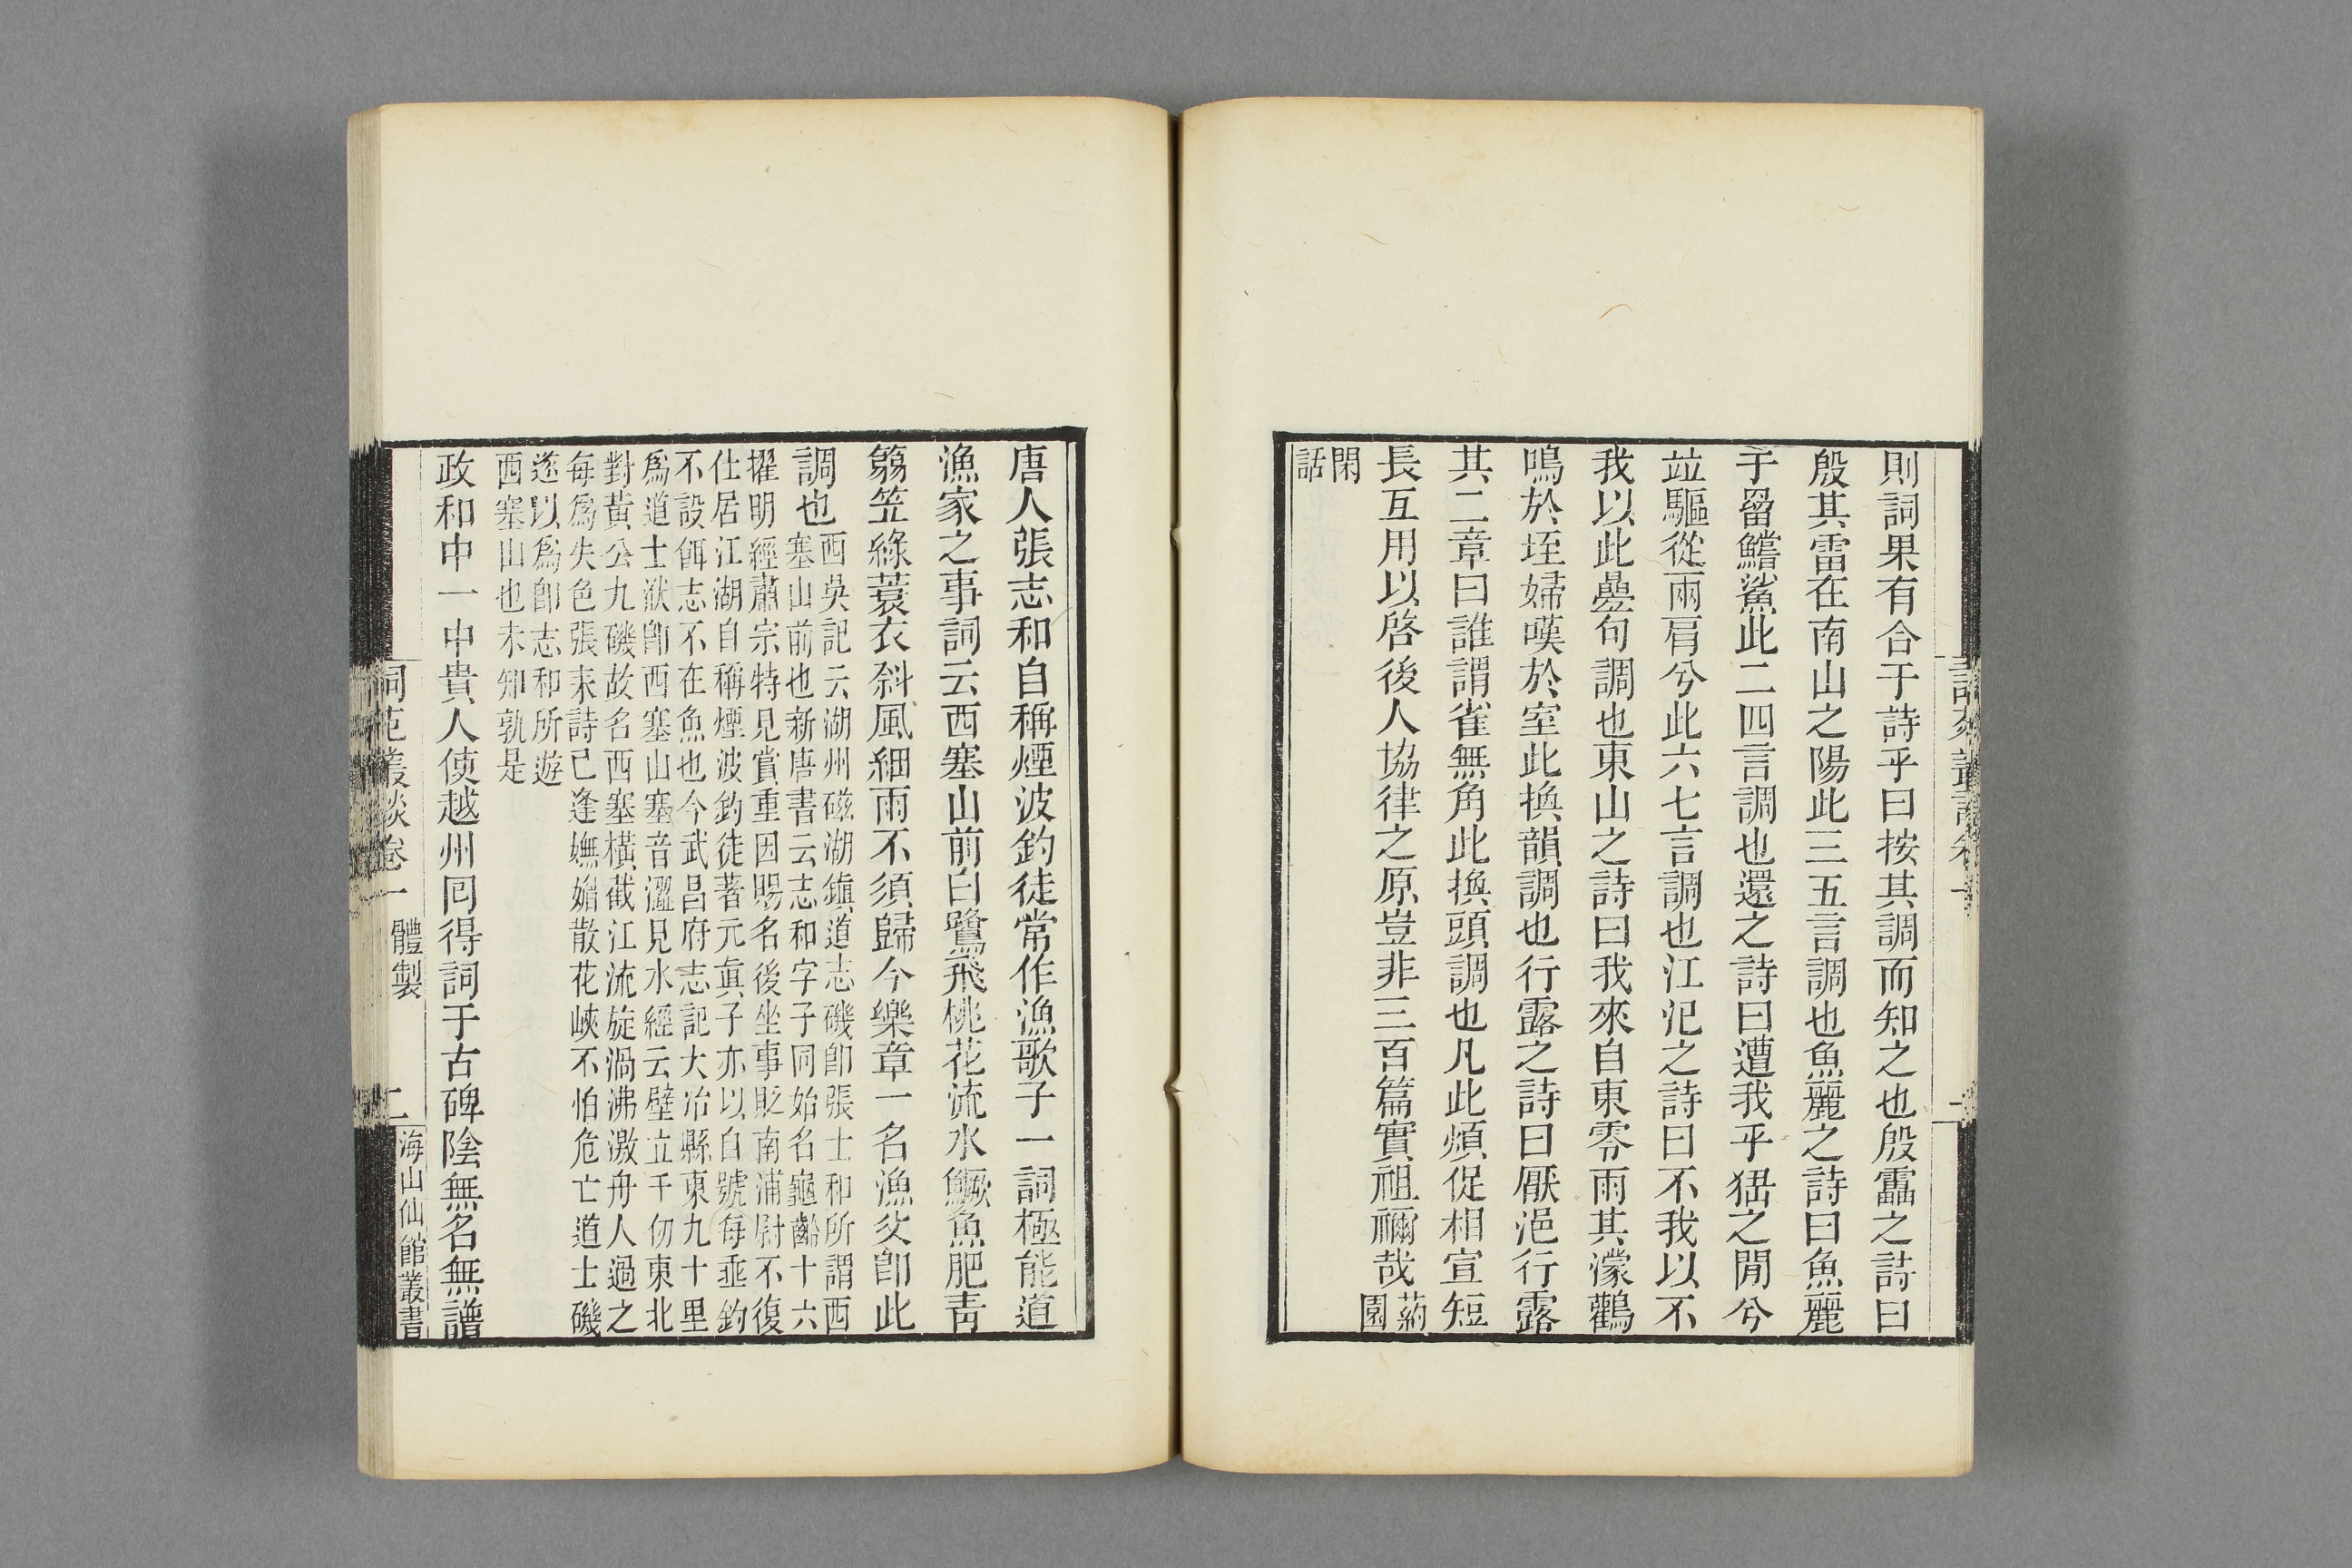 則詞果有合于詩乎曰按其調而知之也殷靁之詩曰
殷其雷在南山之陽此三五言調也魚麗之詩曰魚麗
于罶鱨鯊此二四言調也還之詩曰遭我乎峱之閒兮
竝驅從兩肩兮此六七言調也江汜之詩曰不我以不
我以此疊句調也東山之詩曰我來自東零雨其濛鸛
鳴於垤婦嘆於室此換韻調也行露之詩曰厭浥行露
其二章曰誰謂雀無角此換頭調也凡此煩促相宣短
長互用以啓後人協律之原豈非三百篇實祖禰哉
葯園
閑話
唐人張志和自稱煙波釣徒常作漁歌子一詞極能道
漁家之事詞云西塞山前白鷺飛桃花流水鱖魚肥靑
篛笠綠蓑衣斜風細雨不須歸今樂章一名漁父卽此
調也
西吳記云湖州磁湖鎭道志磯卽張士和所謂西
塞山前也新唐書云志和字子同始名龜齡十六
擢明經肅宗特見賞重因賜名後坐事貶南浦尉不復
仕居江湖自稱煙波釣徒著元眞子亦以自號每垂釣
不設餌志不在魚也今武昌府志記大冶縣東九十里
爲道士洑卽西塞山塞音澀見水經云壁立千仞東北
對黃公九磯故名西塞橫截江流旋渦沸激舟人過之
每爲失色張耒詩已逢嫵媚散花峽不怕危亡道士磯
遂以爲卽志和所遊
西塞山也未知孰是
政和中一中貴人使越州囘得詞于古碑陰無名無譜
詞苑叢談卷一
體製
二
海山仙館叢書